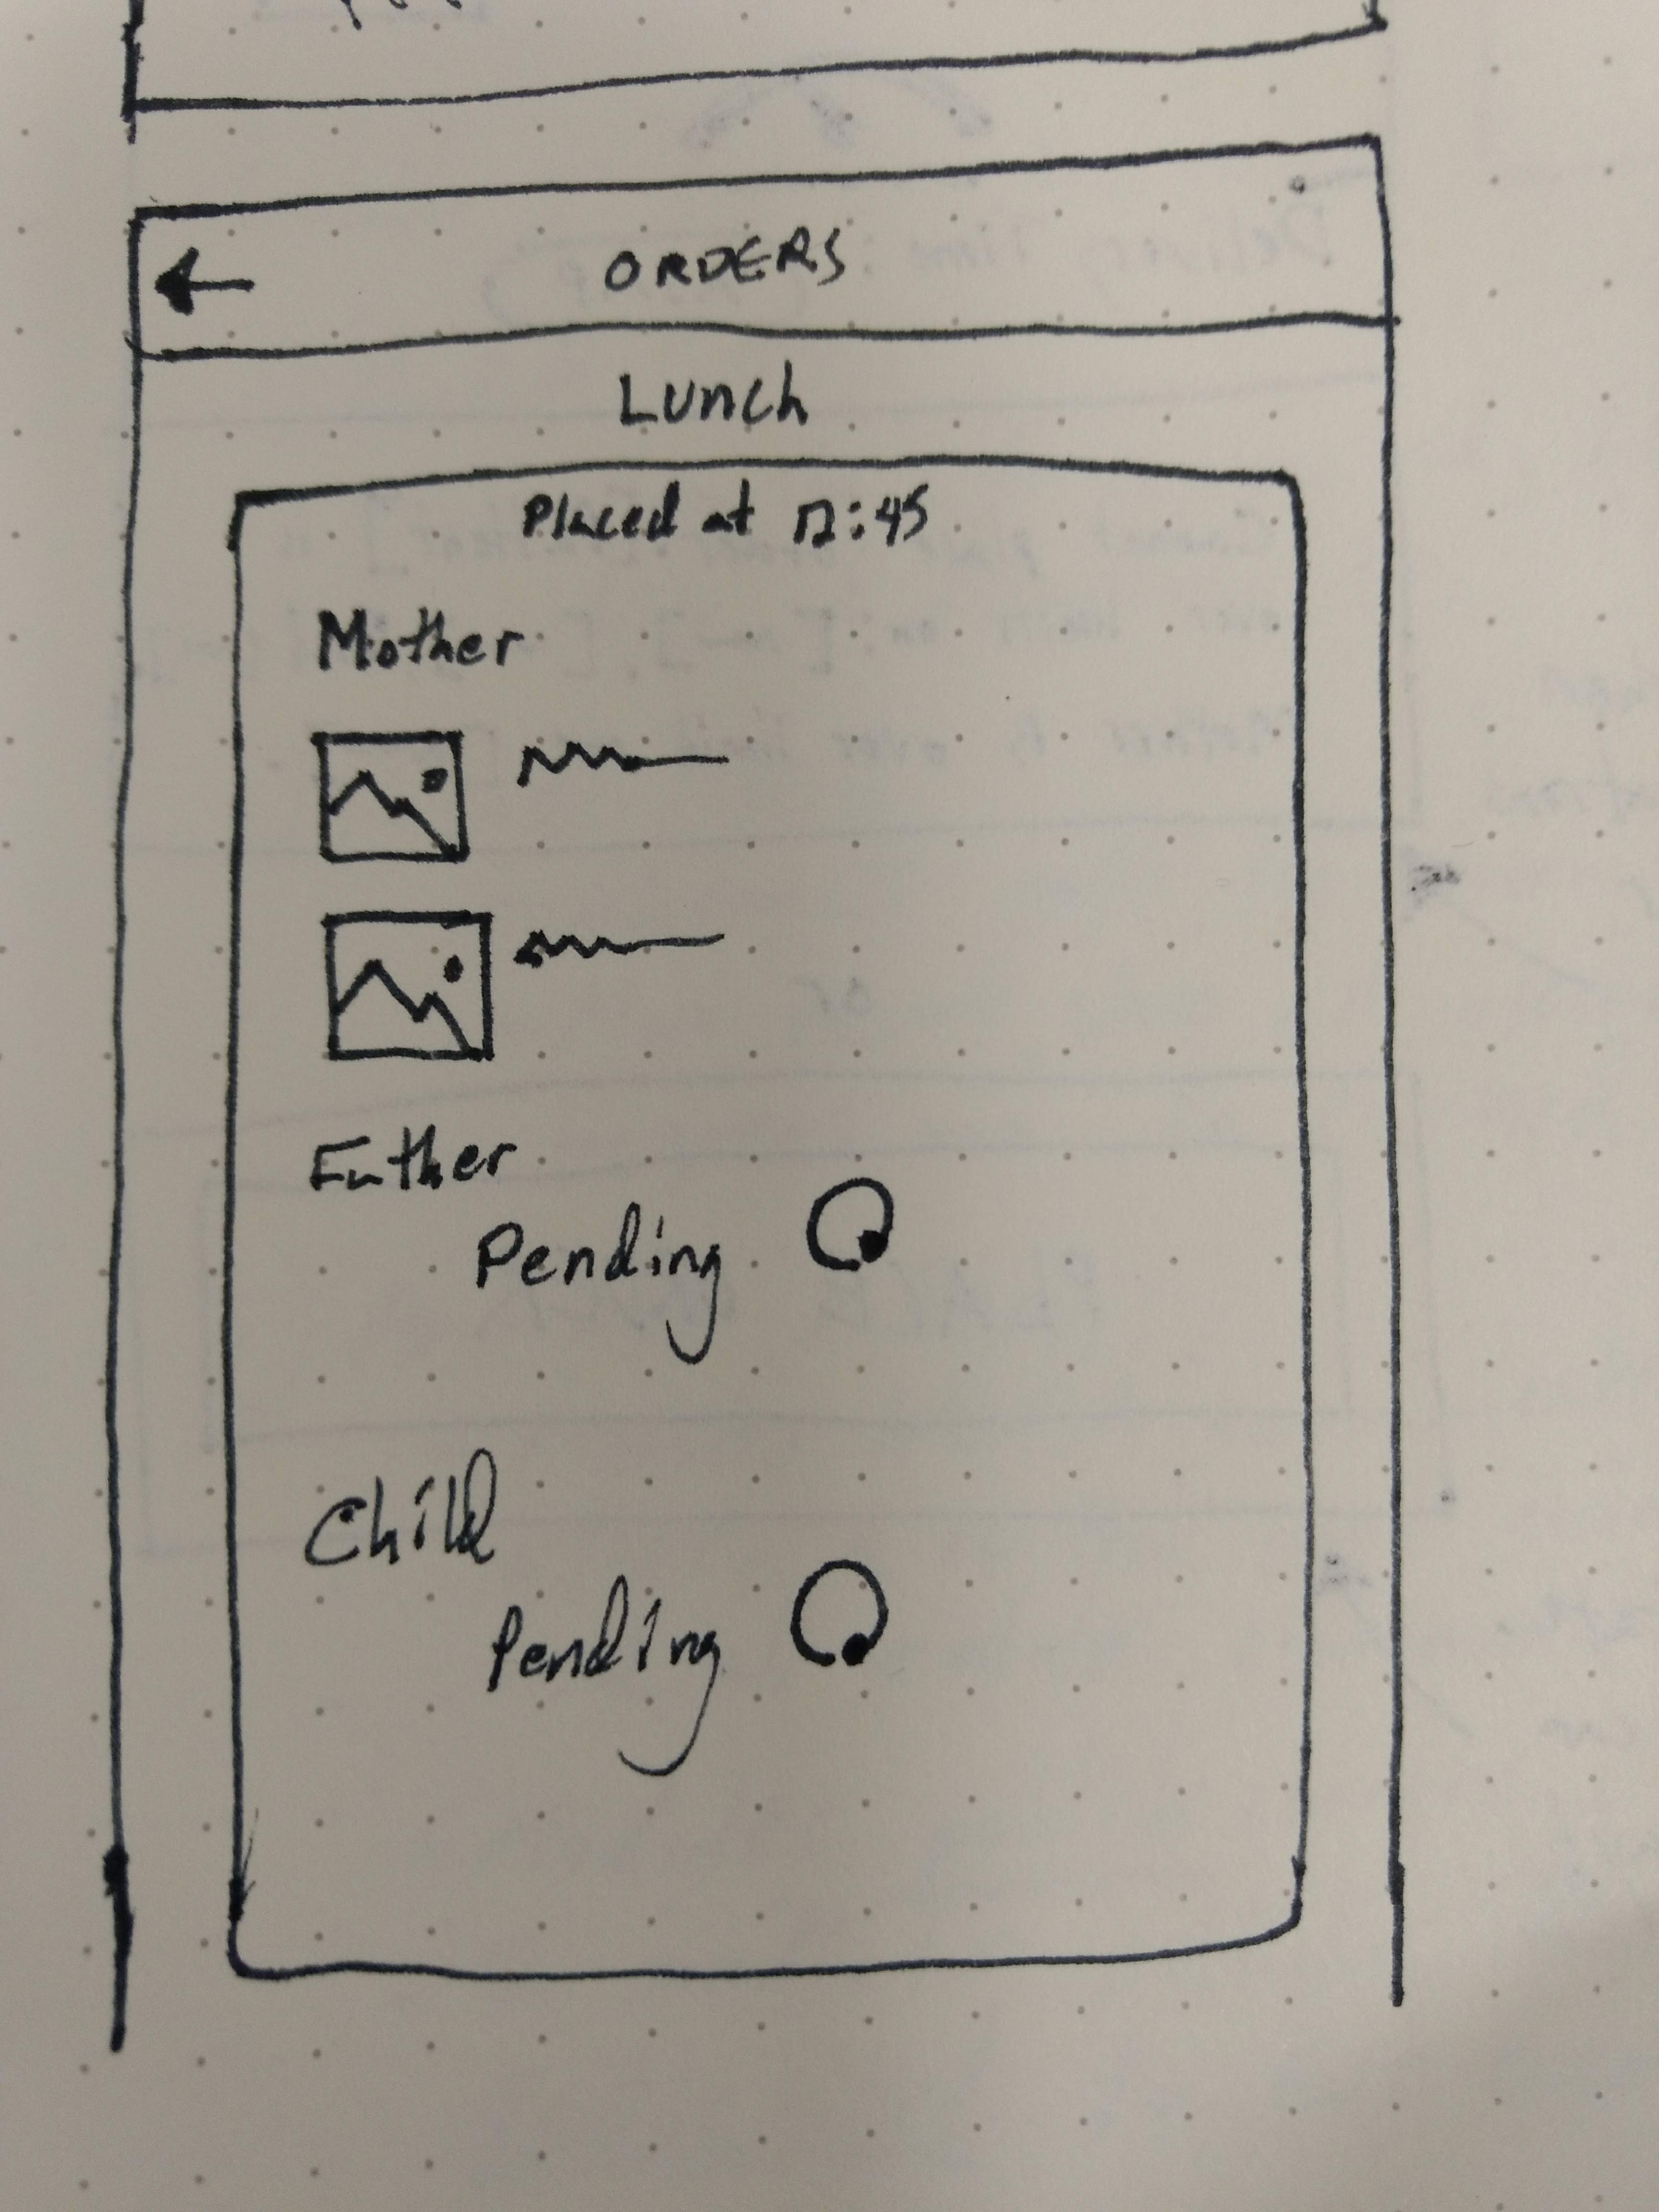 ORDERS
Lunch
Placed at 12:45
Mother
Father
Pending
Child
Pending